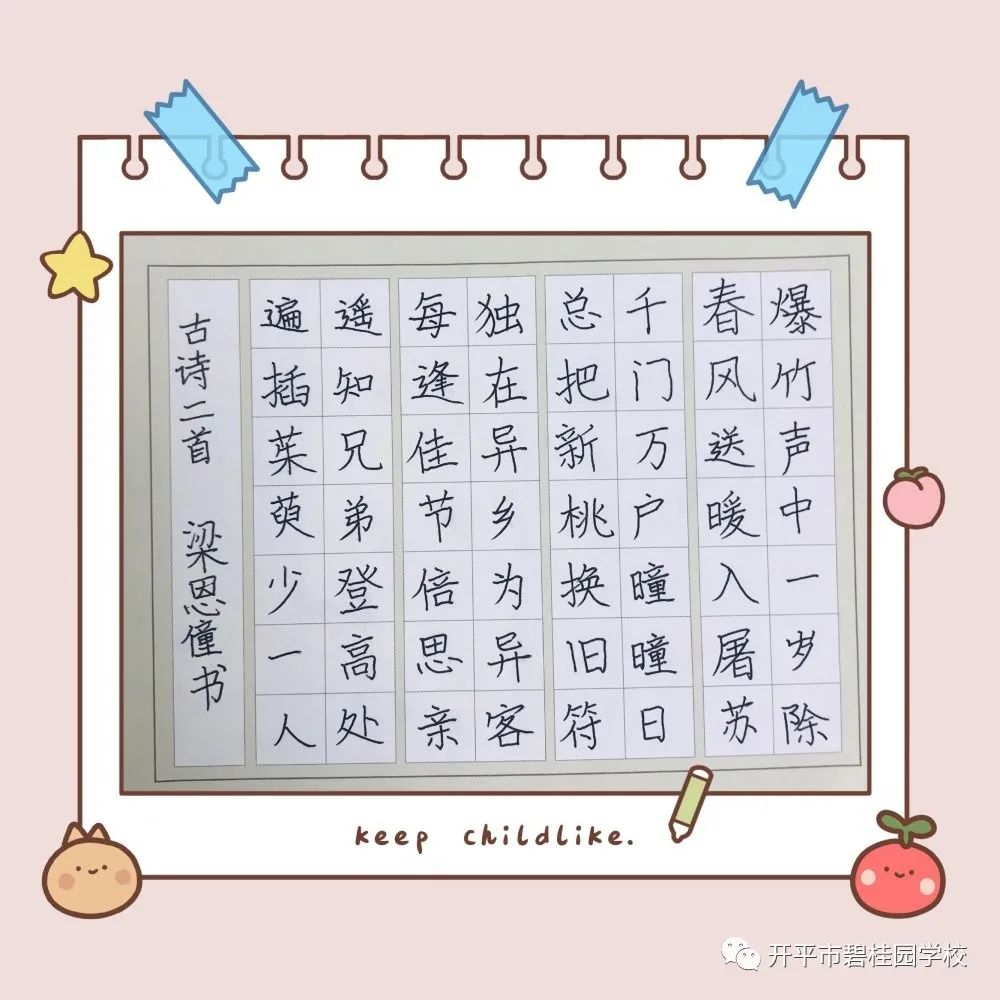 爆竹声中一岁除
春风送暖入屠苏
千门万户曈曈日
总把新桃换旧符
独在异乡为异客
每逢佳节倍思亲
遥知兄弟登高处
遍插茱萸少一人
古诗二首 梁恩僮书
keep childlike.
开平市碧桂园学校